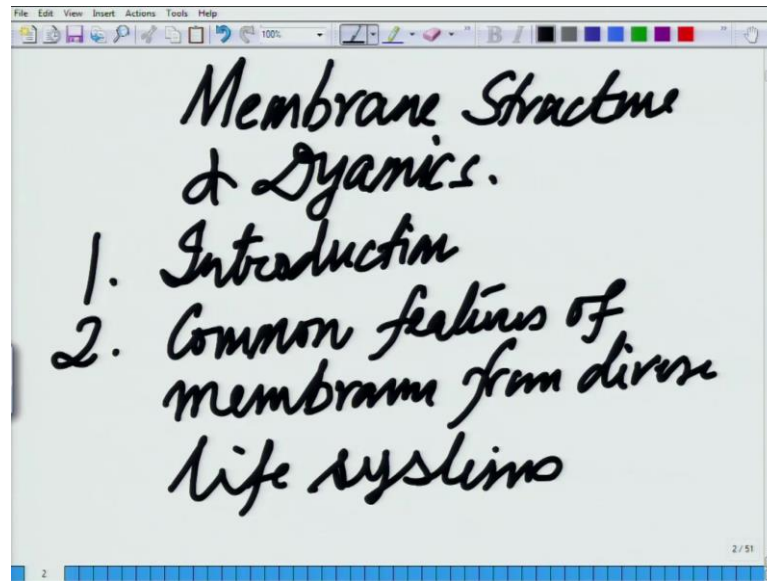 File Edit View Insert Actions Tools Help
100% B I
Membrane Structure
& Dyamics.
1. Introduction
2. Common features of
membranes from diverse
life systems
2 / 51
2